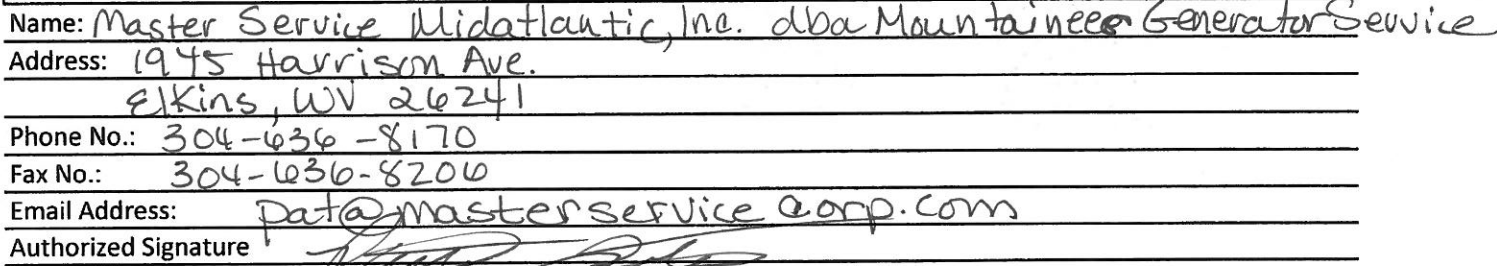 Name: Master Service Midatlantic, Inc. dba Mountaineer Generator Service
Address: 1945 Harrison Ave.
Elkins, WV 26241
Phone No.: 304-636-8170
Fax No.: 304-636-8206
Email Address: pat@masterservicecorp.com
Authorized Signature